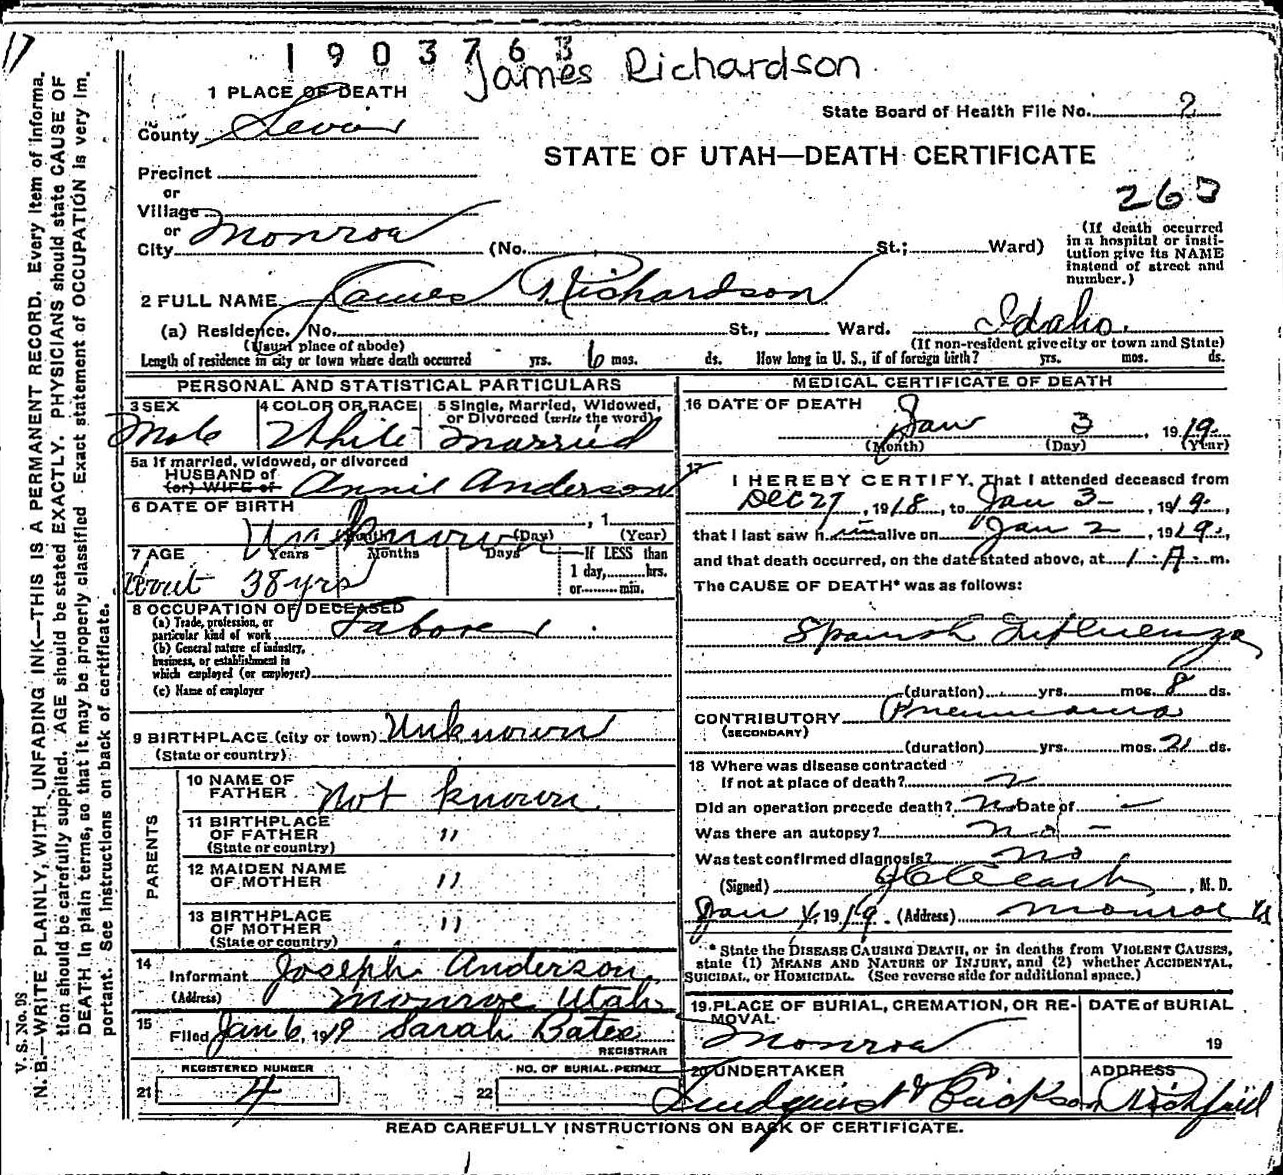 17
1903763
James Richardson
1 PLACE OF DEATH
State Board of Health File No. 2
County Sevier
STATE OF UTAH—DEATH CERTIFICATE
Precinct
or
Village
or
City Monroe (No. St.; Ward)
260
(If death occurred
in a hospital or insti-
tution give its NAME
instead of street and
number.)
2 FULL NAME James Richardson
(a) Residence. No. St., Ward. Idaho.
(Usual place of abode) (If non-resident give city or town and State)
Length of residence in city or town where death occurred yrs. 6 mos. ds. How long in U. S., if of foreign birth? yrs. mos. ds.
PERSONAL AND STATISTICAL PARTICULARS
3 SEX
Male
4 COLOR OR RACE
White
5 Single, Married, Widowed,
or Divorced (write the word)
Married
5a If married, widowed, or divorced
HUSBAND of
(or) WIFE of Annie Anderson
6 DATE OF BIRTH
Unknown , 1
(Month) (Day) (Year)
7 AGE Years Months Days If LESS than
1 day, hrs.
or min.
About 38 yrs
8 OCCUPATION OF DECEASED
(a) Trade, profession, or
particular kind of work Laborer
(b) General nature of industry,
business, or establishment in
which employed (or employer)
(c) Name of employer
9 BIRTHPLACE (city or town) Unknown
(State or country)
PARENTS
10 NAME OF
FATHER Not known
11 BIRTHPLACE
OF FATHER "
(State or country)
12 MAIDEN NAME
OF MOTHER "
13 BIRTHPLACE
OF MOTHER "
(State or country)
14
Informant Joseph Anderson
(Address) Monroe Utah
15
Filed Jan 6, 1919 Sarah Bates
REGISTRAR
21 REGISTERED NUMBER
4
22 NO. OF BURIAL PERMIT
MEDICAL CERTIFICATE OF DEATH
16 DATE OF DEATH
Jan 3, 1919
(Month) (Day) (Year)
17
I HEREBY CERTIFY, That I attended deceased from
Dec 27, 1918, to Jan 3-, 1919,
that I last saw him alive on Jan 2, 1919,
and that death occurred, on the date stated above, at 1. A. m.
The CAUSE OF DEATH* was as follows:
Spanish Influenza
(duration) yrs. mos. 8 ds.
CONTRIBUTORY Pneumonia
(SECONDARY)
(duration) yrs. mos. 2 ds.
18 Where was disease contracted
If not at place of death?
Did an operation precede death? No Date of -
Was there an autopsy? No -
Was test confirmed diagnosis? No
(Signed) , M. D.
Jan 4, 1919. (Address) Monroe
* State the DISEASE CAUSING DEATH, or in deaths from VIOLENT CAUSES,
state (1) MEANS AND NATURE OF INJURY, and (2) whether ACCIDENTAL,
SUICIDAL, or HOMICIDAL. (See reverse side for additional space.)
19. PLACE OF BURIAL, CREMATION, OR RE-
MOVAL
Monroe
DATE of BURIAL
19
20 UNDERTAKER
Lundquist & Erickson
ADDRESS
Richfield
READ CAREFULLY INSTRUCTIONS ON BACK OF CERTIFICATE.
V. S. No. 98
N. B.—WRITE PLAINLY, WITH UNFADING INK—THIS IS A PERMANENT RECORD. Every item of informa-
tion should be carefully supplied. AGE should be stated EXACTLY. PHYSICIANS should state CAUSE OF
DEATH in plain terms, so that it may be properly classified. Exact statement of OCCUPATION is very im-
portant. See instructions on back of certificate.